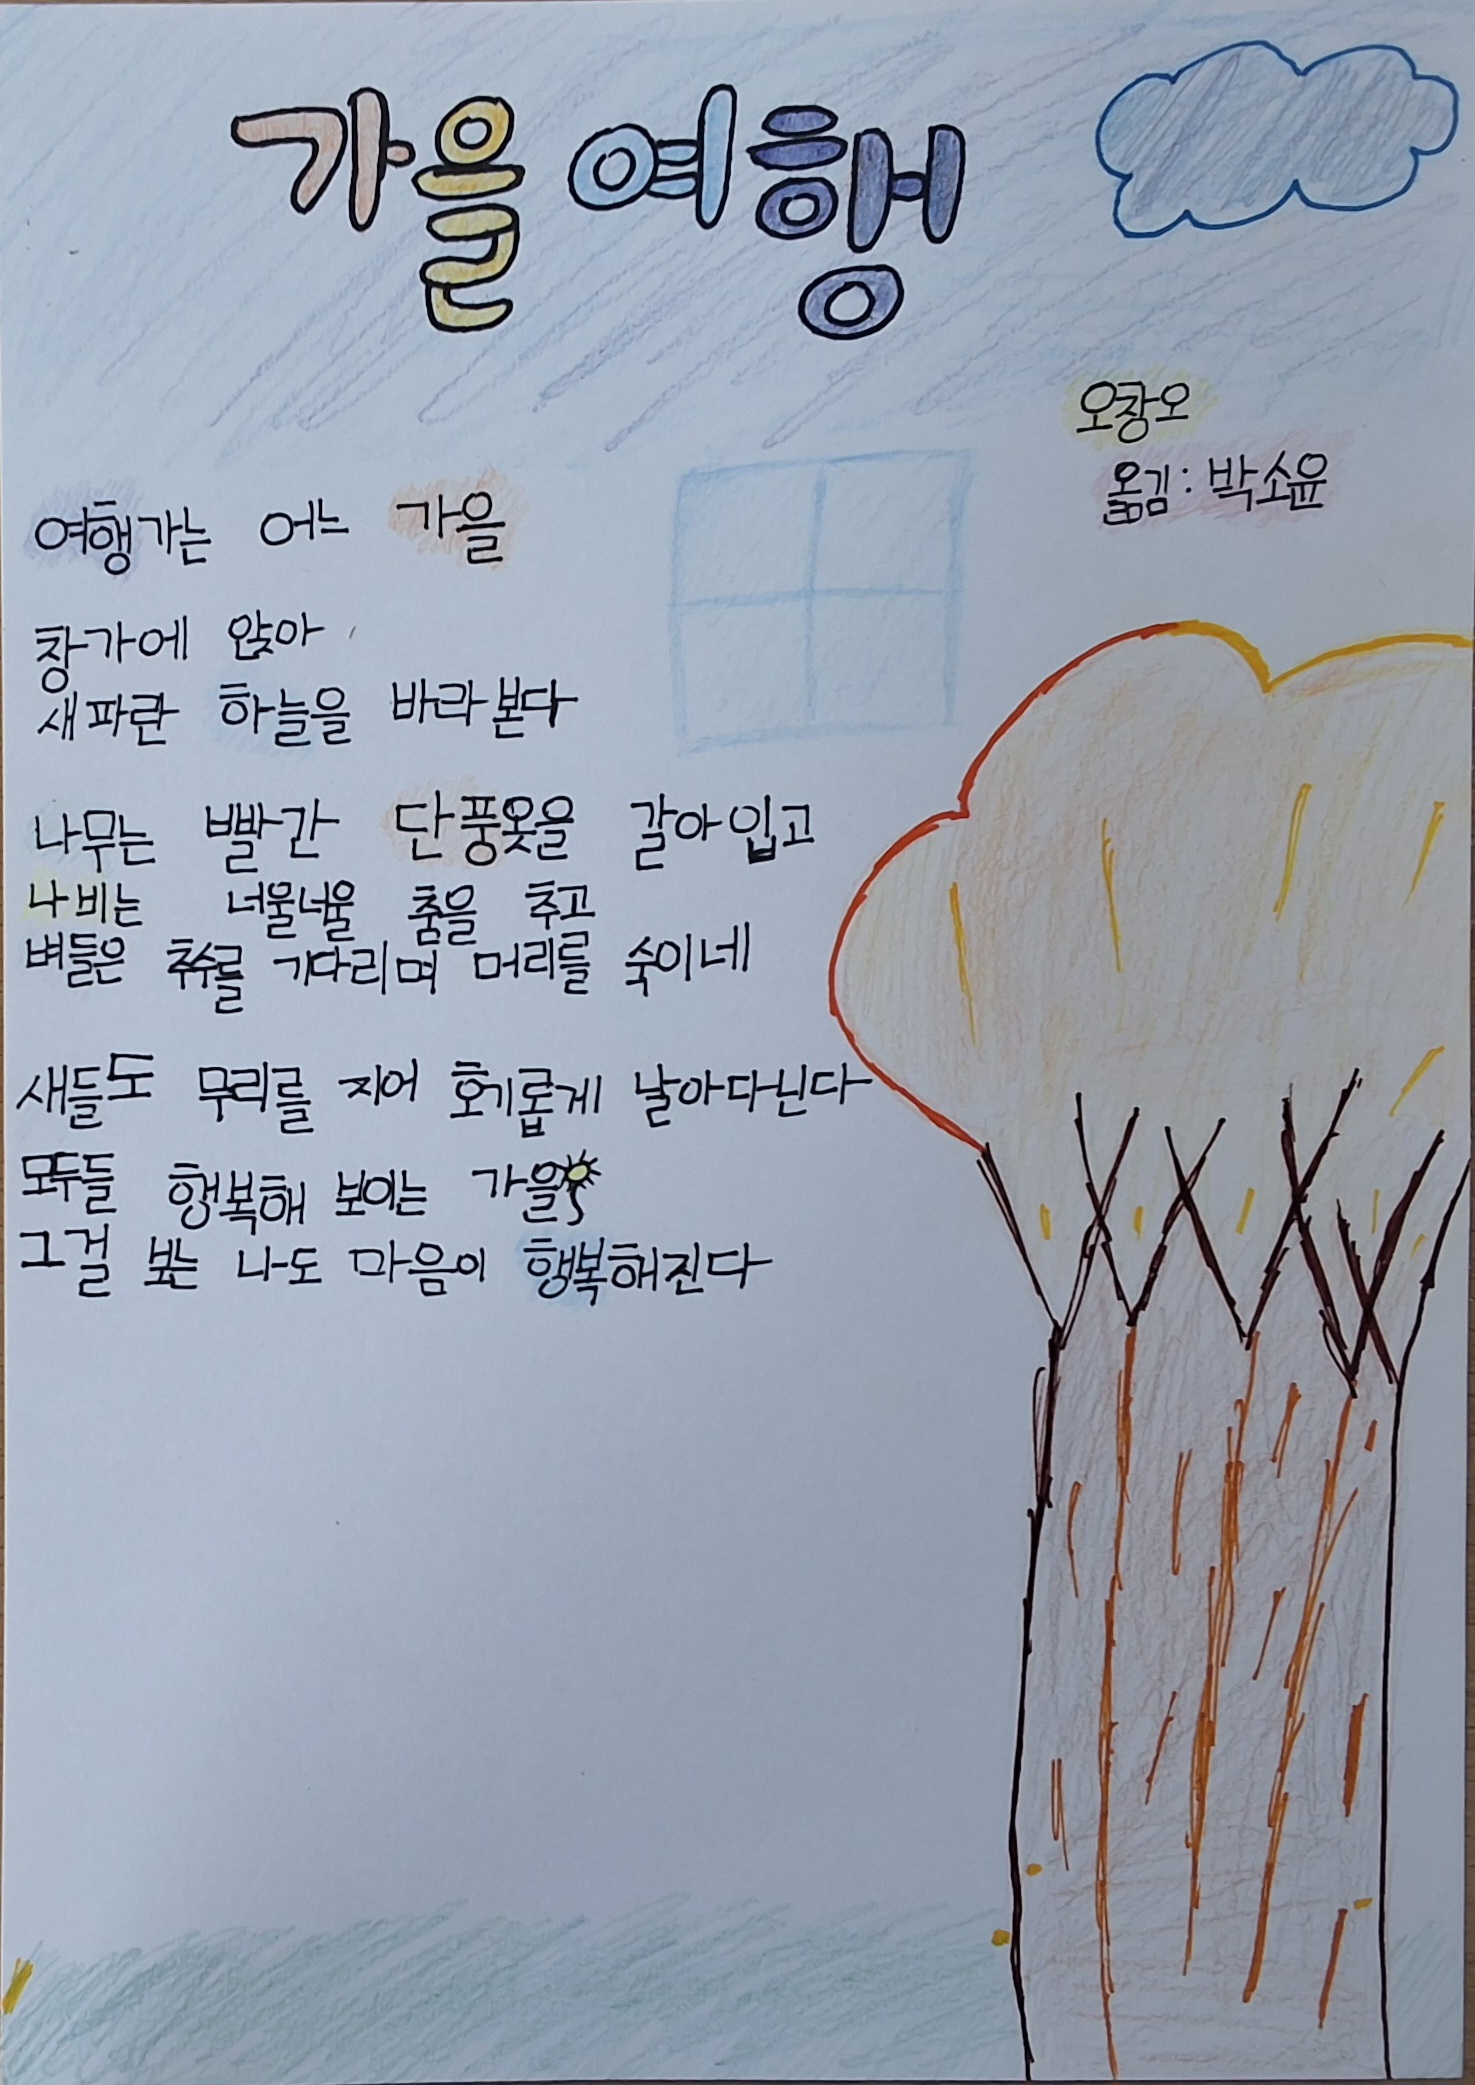 가을 여행
오창오
옮김: 박소윤
여행가는 어느 가을
창가에 앉아
새파란 하늘을 바라본다
나무는 빨간 단풍옷을 갈아입고
나비는 너울너울 춤을 추고
벼들은 추수를 기다리며 머리를 숙이네
새들도 무리를 지어 호기롭게 날아다닌다
모두들 행복해 보이는 가을
그걸 보는 나도 마음이 행복해진다